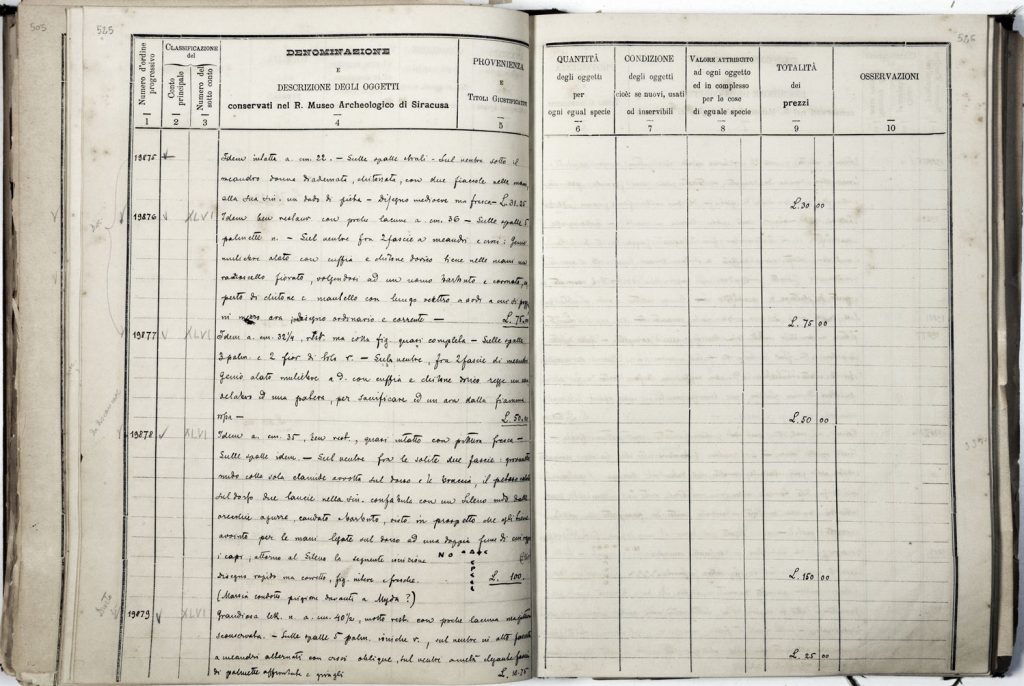 505
525
Numero d'ordine progressivo
CLASSIFICAZIONE del
Conto principale
Numero del sotto conto
DENOMINAZIONE
E
DESCRIZIONE DEGLI OGGETTI
conservati nel R. Museo Archeologico di Siracusa
PROVENIENZA
E
TITOLI GIUSTIFICATIVI
1 2 3 4 5
19875
Idem intatta a. cm. 22. - Sulle spalle ovuli - Sul ventre sotto il
meandro donna diademata, chitonata, con due fiaccole nelle mani,
alla sua sin. un dado di pietra - disegno mediocre ma fresco - L. 31.25
19876 XLVI
Idem ben restaur. con poche lacune a. cm. 36 - Sulle spalle 5
palmette n. - Sul ventre fra 2 fascie a meandri e croci: Genio
muliebre alato con cuffia e chitone dorico tiene nelle mani un
ramoscello fiorato, volgendosi ad un uomo barbuto e coronato, co
perto di chitone e mantello con lungo scettro
ara; disegno ordinario e corrente - L. 75.
19877 XLVI
Idem a. cm. 32 1/4, ma colla fig. quasi completa - Sulle spalle
3 palm. e 2 fior di loto r. - Sul ventre, fra 2 fascie di meandro
Genio alato muliebre a D. con cuffia e chitone dorico regge un
ed una patera, per sacrificare ad un ara dalla fiamma
rossa - L. 50.
19878 XLVI
Idem a. cm. 35, ben rest., quasi intatto con pittura fresca -
Sulle spalle idem. - Sul ventre fra le solite due fascie: giovanetto
nudo colla sola clamide avvolta sul dorso e le braccia, il petaso
sul dorso due lancie nella sin. confabula con un Sileno nudo dalle
orecchie aguzze, caudato e barbuto, visto in prospetto che egli tiene
avvinto per le mani legate sul dorso ad una doppia fune di cui regge
i capi; attorno al Sileno la seguente iscrizione
disegno rapido ma corretto, fig. nitide e fresche. L. 100.
(Marsia condotto prigione davanti a Myda?)
19879 XLVI
Grandiosa lek. n. a. cm. 40 1/2, molto rest. con poche lacune
conservata. - Sulle spalle 5 palm. ioniche r., sul ventre in alto fascia
a meandri alternati con croci oblique, sul ventre a metà elegante fascia
di palmette affrontate e L. 18.75
526
QUANTITÀ
degli oggetti
per
ogni egual specie
CONDIZIONE
degli oggetti
cioè: se nuovi, usati
od inservibili
VALORE ATTRIBUITO
ad ogni oggetto
od in complesso
per le cose
di eguale specie
TOTALITÀ
dei
prezzi
OSSERVAZIONI
6 7 8 9 10
L. 30 00
L. 75 00
L. 50 00
L. 150 00
L. 25 00